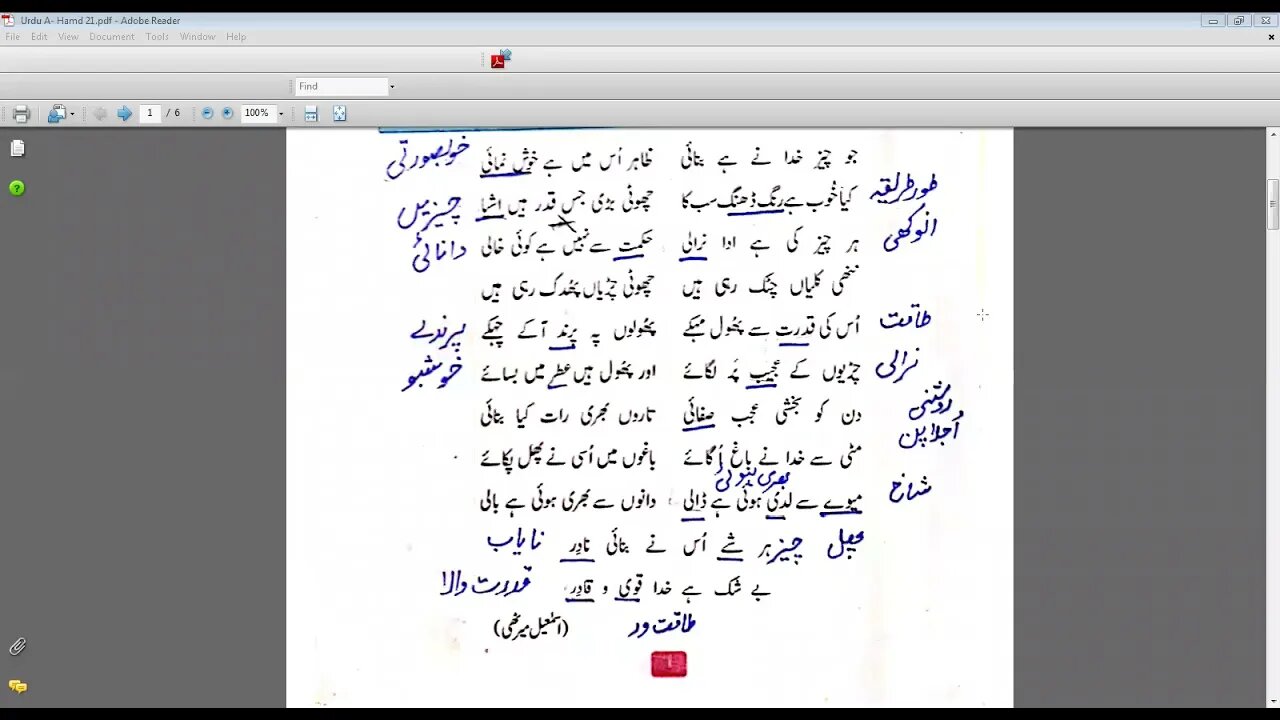 Urdu A- Hamd 21.pdf - Adobe Reader
File Edit View Document Tools Window Help
Find
1 / 6 100%
جو چیز خدا نے ہے بنائی ظاہر اُس میں ہے خوش نمائی خوبصورتی
طور طریقہ کیا خُوب ہے رنگ ڈھنگ سب کا چھوٹی بڑی جس قدر ہیں اشیا چیزیں
انوکھی ہر چیز کی ہے ادا نرالی حکمت سے نہیں ہے کوئی خالی دانائی
ننھی کلیاں چٹک رہی ہیں چھوٹی چڑیاں پھُدک رہی ہیں
طاقت اُس کی قدرت سے پھُول مہکے پھُولوں پہ پرند آکے چہکے پرندے
نرالی چڑیوں کے عجیب پَر لگائے اور پھُول ہیں عطر میں بسائے خوشبو
روشنی دن کو بخشی عجب صفائی تاروں بھری رات کیا بنائی
اُجلاپن
مٹی سے خدا نے باغ اُگائے باغوں میں اُسی نے پھل پکائے
بھری ہوئی
شاخ میوے سے لدی ہوئی ہے ڈالی دانوں سے بھری ہوئی ہے بالی
پھل چیز ہر شے اُس نے بنائی نادِر نایاب
بے شک ہے خدا قوی و قادِر قدرت والا
طاقت ور (اسمٰعیل میرٹھی)
1